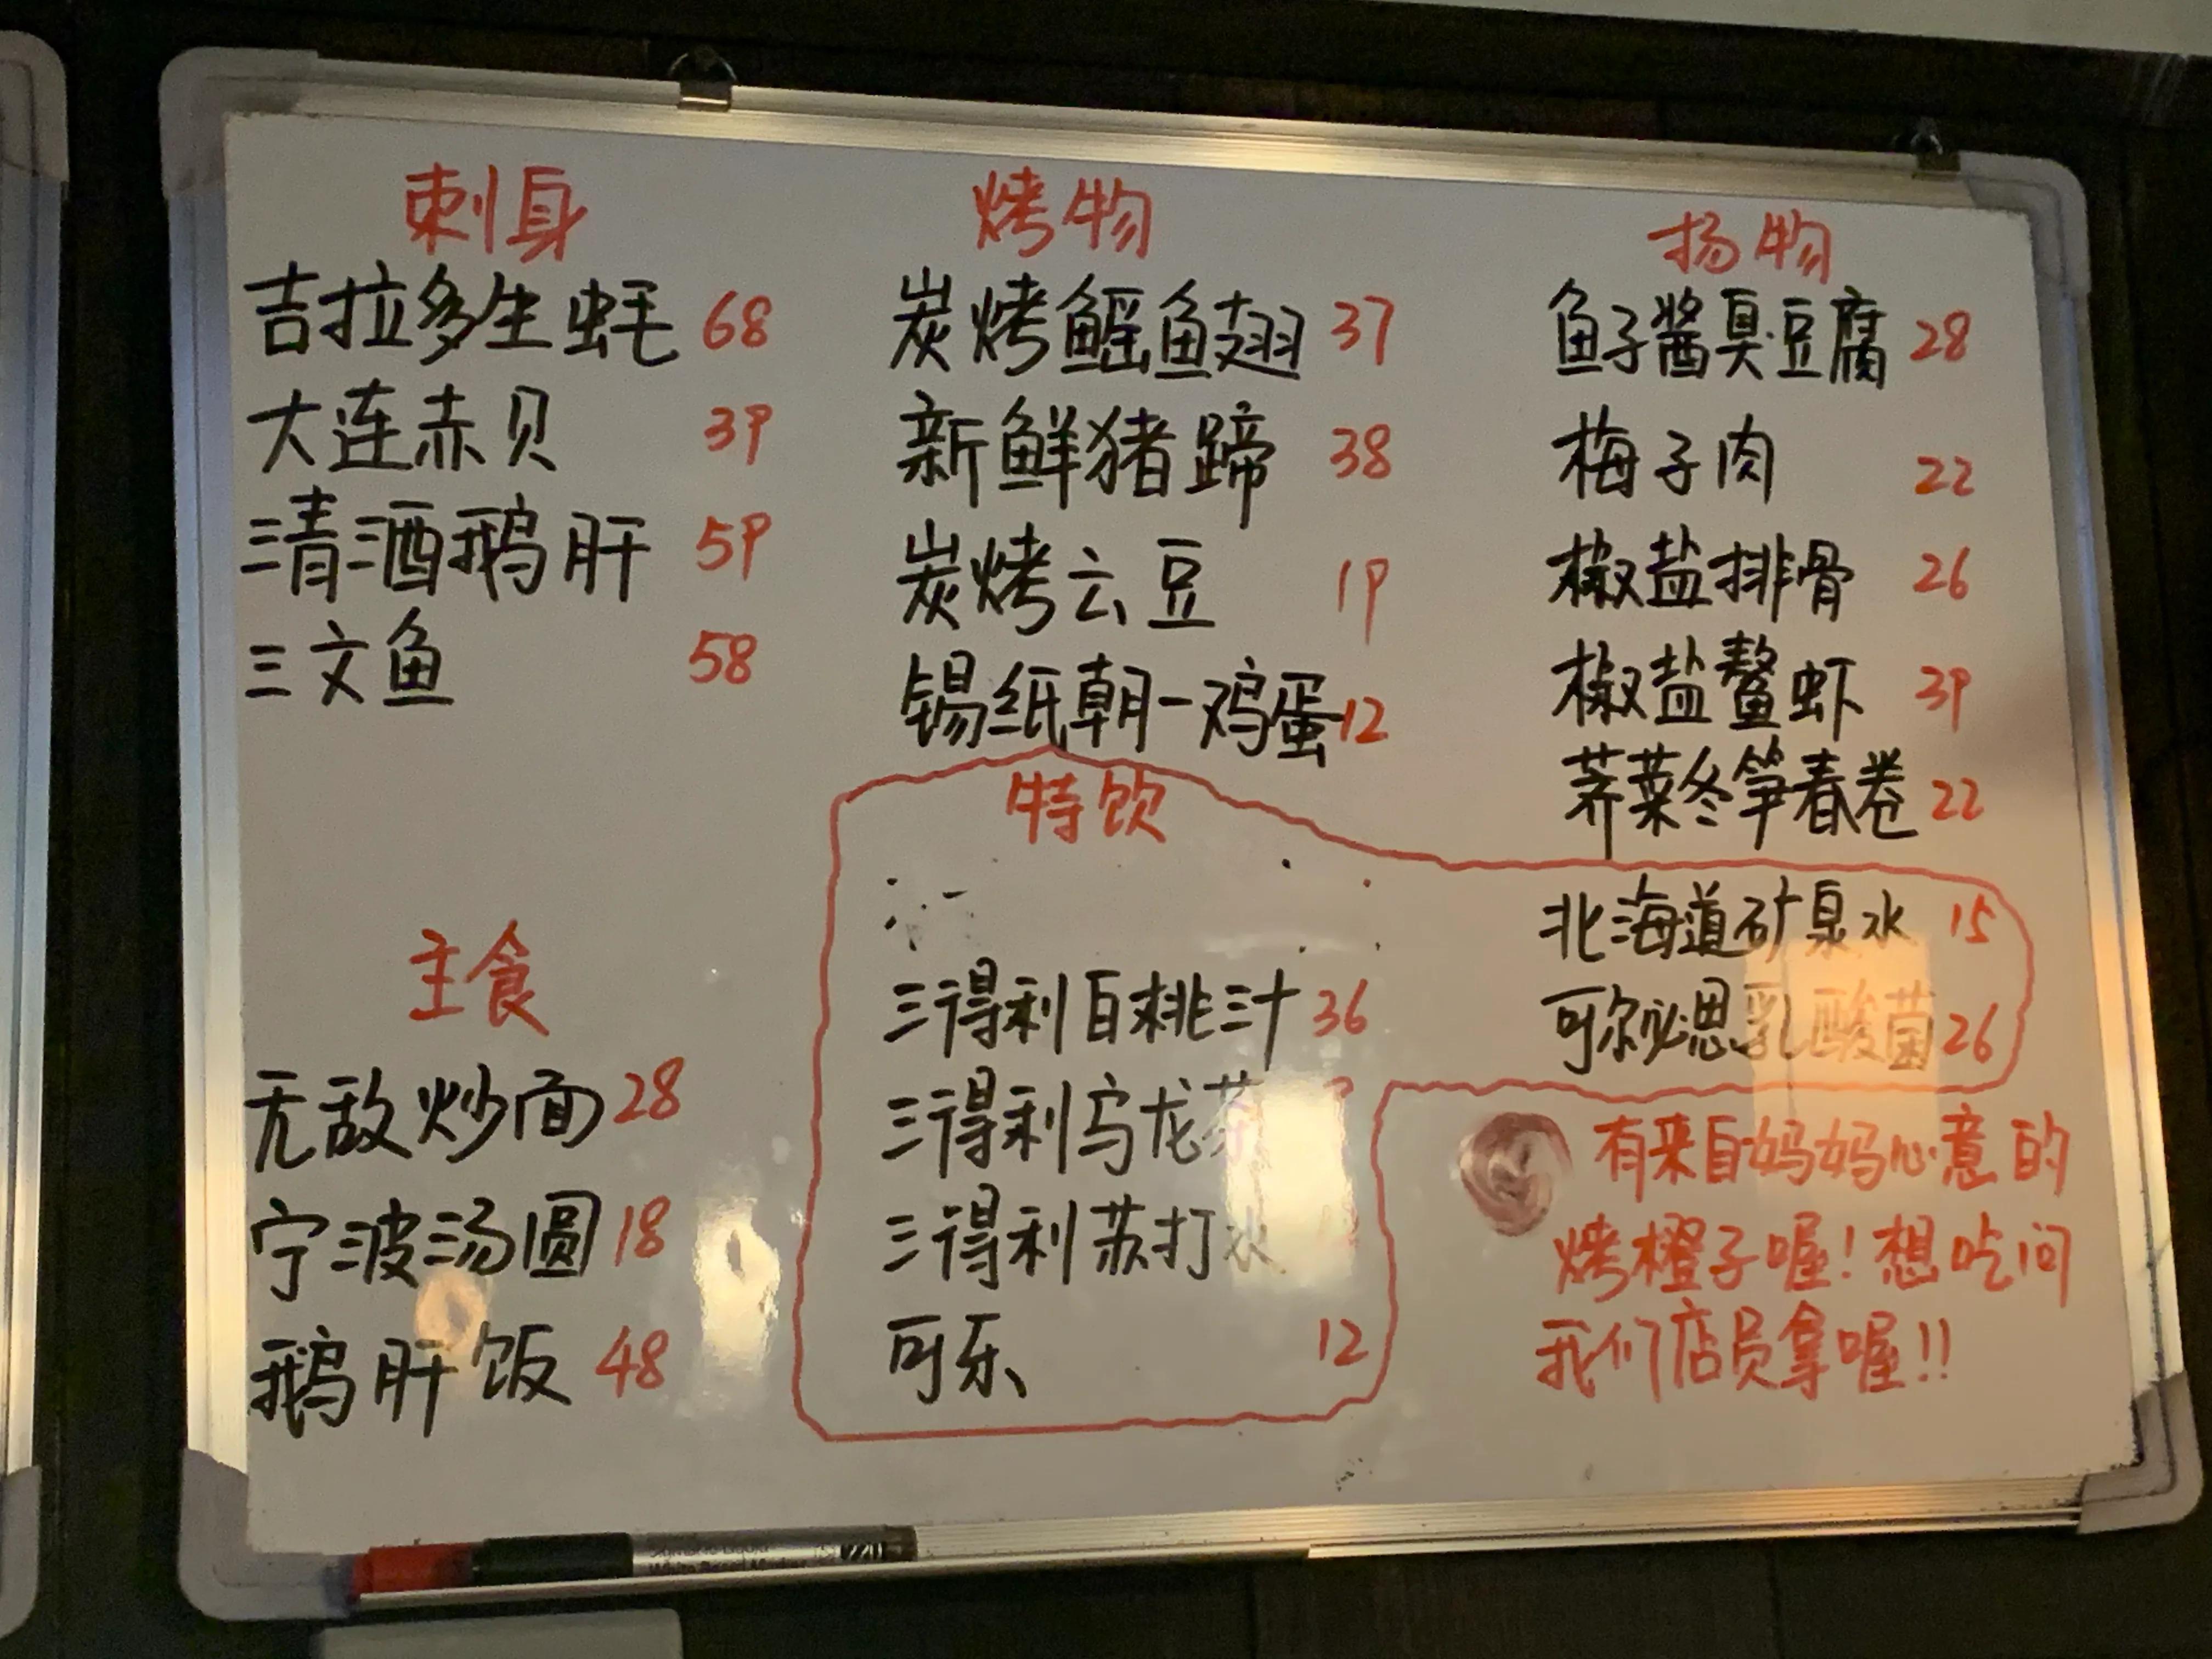 刺身
吉拉多生蚝 68
大连赤贝 39
清酒鹅肝 59
三文鱼 58
主食
无敌炒面 28
宁波汤圆 18
鹅肝饭 48
烤物
炭烤鳐鱼翅 37
新鲜猪蹄 38
炭烤云豆 19
锡纸朝一鸡蛋 12
扬物
鱼子酱臭豆腐 28
梅子肉 22
椒盐排骨 26
椒盐鳌虾 39
荠菜冬笋春卷 22
特饮
三得利白桃汁 36
三得利乌龙茶
三得利苏打水
可乐 12
北海道矿泉水 15
可尔必思乳酸菌 26
有来自妈妈心意的
烤橙子喔!想吃问
我们店员拿喔!!